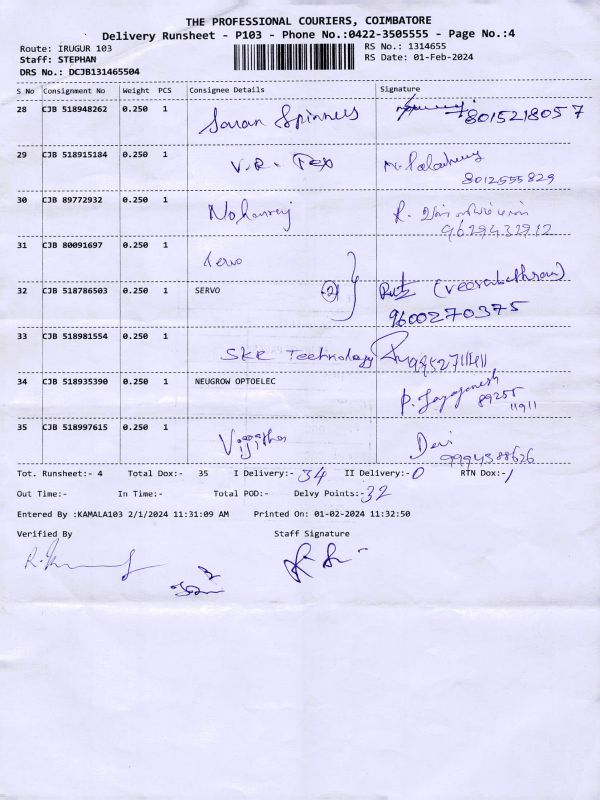 THE PROFESSIONAL COURIERS, COIMBATORE
Delivery Runsheet - P103 - Phone No.:0422-3505555 - Page No.:4
Route: IRUGUR 103
RS No.: 1314655
Staff: STEPHAN
RS Date: 01-Feb-2024
DRS No.: DCJB131465504
S No Consignment No Weight PCS Consignee Details Signature
28 CJB 518948262 0.250 1 Saran Spinners 8015218057
29 CJB 518915184 0.250 1 V.R. Tex 8012555829
30 CJB 89772932 0.250 1 9629432912
31 CJB 80091697 0.250 1 Servo
32 CJB 518786503 0.250 1 SERVO (2)
9600270375
33 CJB 518981554 0.250 1 SKR Technology
34 CJB 518935390 0.250 1 NEUGROW OPTOELEC P. Jayaganesh
89255
11911
35 CJB 518997615 0.250 1 Devi
9994388626
Tot. Runsheet:- 4 Total Dox:- 35 I Delivery:- 34 II Delivery:- 0 RTN Dox:- 1
Out Time:- In Time:- Total POD:- Delvy Points:- 32
Entered By :KAMALA103 2/1/2024 11:31:09 AM Printed On: 01-02-2024 11:32:50
Verified By Staff Signature